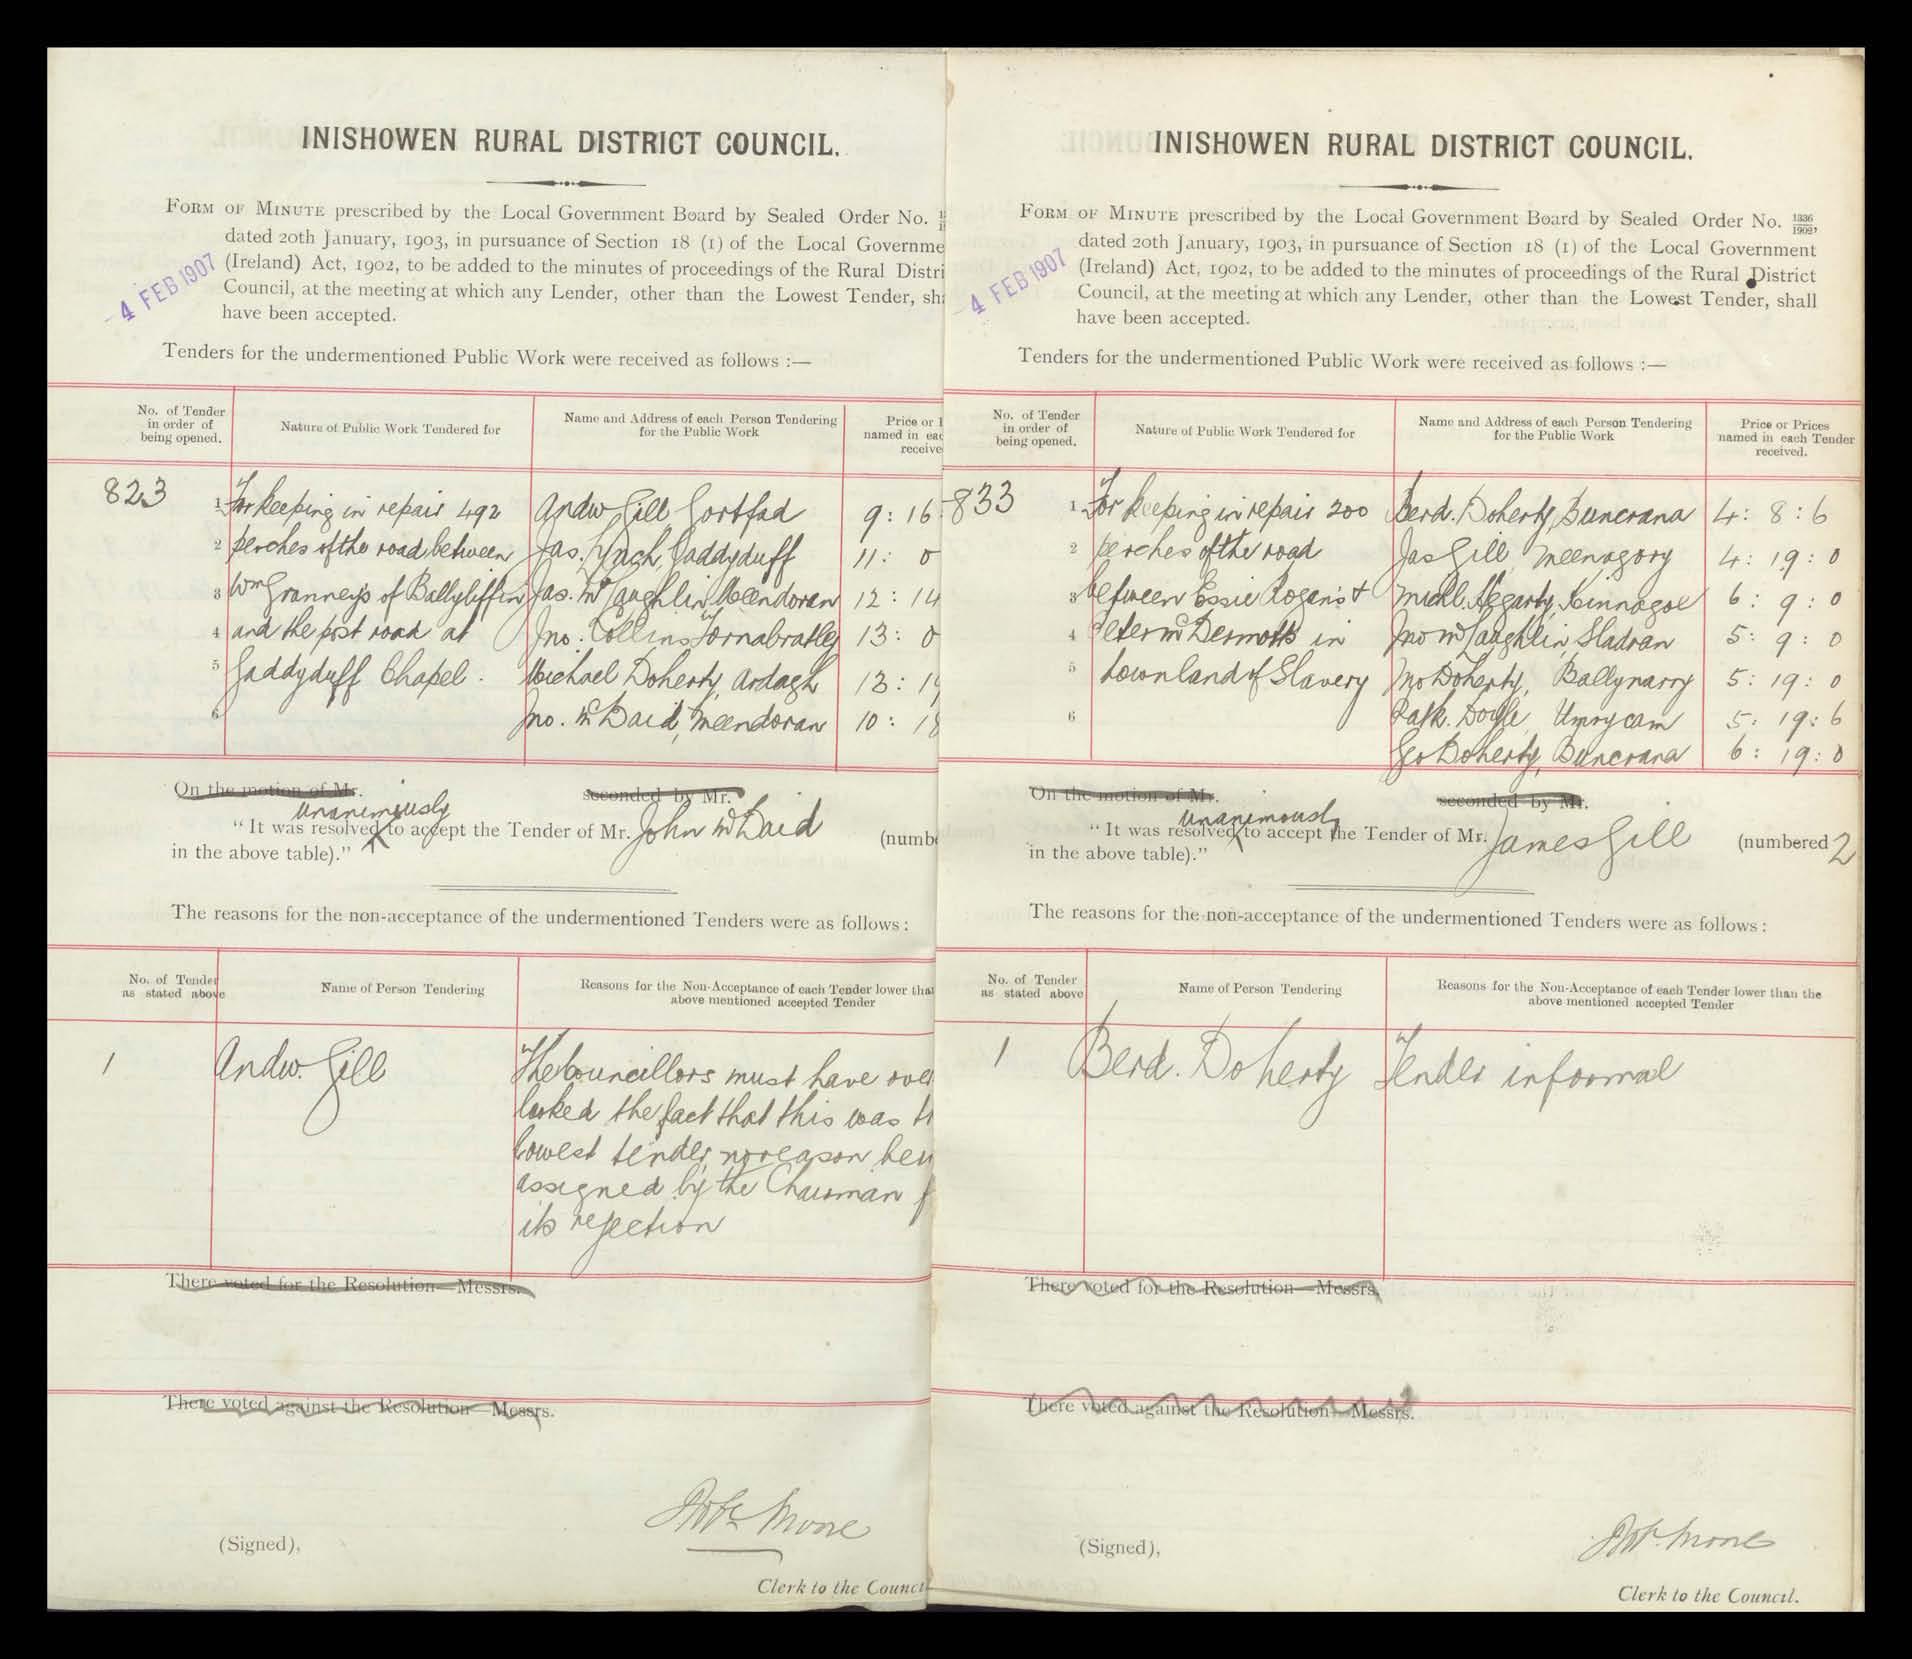 INISHOWEN RURAL DISTRICT COUNCIL.
FORM OF MINUTE prescribed by the Local Government Board by Sealed Order No.
dated 20th January, 1903, in pursuance of Section 18 (1) of the Local Governme
(Ireland) Act, 1902, to be added to the minutes of proceedings of the Rural Distri
Council, at the meeting at which any Lender, other than the Lowest Tender, sha
have been accepted.
4 FEB 1907
Tenders for the undermentioned Public Work were received as follows :—
No. of Tender in order of being opened.
Nature of Public Work Tendered for
Name and Address of each Person Tendering for the Public Work
Price or P named in eac receive
823
1 For keeping in repair 492 Andw Gill Gortfad 9 : 16
2 perches of the road between Jas. Lynch, Gaddyduff 11 : 0
3 Wm Granneys of Ballyliffin Jas. McLaughlin, Meendoran 12 : 14
4 and the post road at Jno. Collins Tornabratley 13 : 0
5 Gaddyduff Chapel. Michael Doherty, Ardagh 13 : 19
6 Jno. McDaid, Meendoran 10 : 18
On the motion of Mr. seconded by Mr.
unanimously
"It was resolved to accept the Tender of Mr. John McDaid (numbe
in the above table)."
The reasons for the non-acceptance of the undermentioned Tenders were as follows :
No. of Tender as stated above
Name of Person Tendering
Reasons for the Non-Acceptance of each Tender lower than above mentioned accepted Tender
1 Andw. Gill The Councillors must have over
looked the fact that this was th
lowest tender, no reason bein
assigned by the Chairman f
its rejection
There voted for the Resolution—Messrs.
There voted against the Resolution—Messrs.
(Signed), Robt Moore
Clerk to the Counci
INISHOWEN RURAL DISTRICT COUNCIL.
FORM OF MINUTE prescribed by the Local Government Board by Sealed Order No. 1336/1902,
dated 20th January, 1903, in pursuance of Section 18 (1) of the Local Government
(Ireland) Act, 1902, to be added to the minutes of proceedings of the Rural District
Council, at the meeting at which any Lender, other than the Lowest Tender, shall
have been accepted.
4 FEB 1907
Tenders for the undermentioned Public Work were received as follows :—
No. of Tender in order of being opened.
Nature of Public Work Tendered for
Name and Address of each Person Tendering for the Public Work
Price or Prices named in each Tender received.
833
1 For keeping in repair 200 Berd. Doherty, Buncrana 4 : 8 : 6
2 perches of the road Jas Gill Meenagory 4 : 19 : 0
3 between Essie Rogan's & Michl. Hegarty, Kinnagoe 6 : 9 : 0
4 Peter McDermott's in Jno McLaughlin, Sladran 5 : 9 : 0
5 townland of Slavery Jno Doherty, Ballynarry 5 : 19 : 0
6 Patk. Doyle, Umrycam 5 : 19 : 6
Geo Doherty, Buncrana 6 : 19 : 0
On the motion of Mr. seconded by Mr.
unanimously
"It was resolved to accept the Tender of Mr. James Gill (numbered 2
in the above table)."
The reasons for the non-acceptance of the undermentioned Tenders were as follows :
No. of Tender as stated above
Name of Person Tendering
Reasons for the Non-Acceptance of each Tender lower than the above mentioned accepted Tender
1 Berd. Doherty Tender informal
There voted for the Resolution—Messrs.
There voted against the Resolution—Messrs.
(Signed), Robt. Moore
Clerk to the Council.